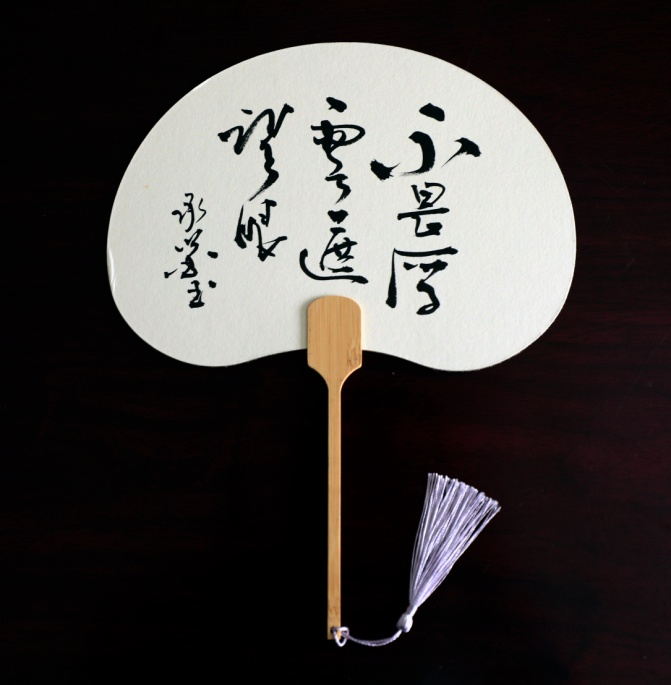 不畏浮
雲遮
望眼
承